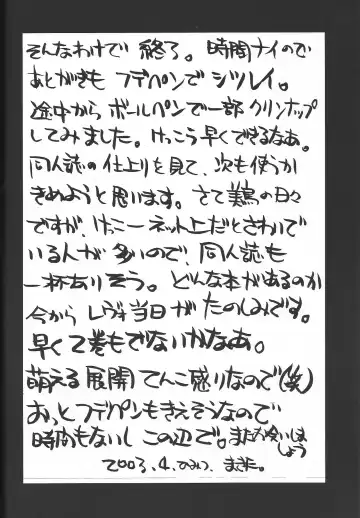 そんなわけで 終了。時間ナイので
あとがきも フデペンで シツレイ。
途中から ボールペンで一部 クリンナップ
してみました。けっこう早くできるなあ。
同人誌の 仕上りを見て、次も使うか
きめようと思います。さて 美鳥の日々
ですが、けっこーネット上だとさわいで
いる人が 多いので、同人誌も
一杯ありそう。どんな本があるのか
今から レヴォ当日が たのしみです。
早く 2巻もでないかなあ。
萌える 展開 てんこ盛りなので(笑)
おっとフデペンもきえそうなので
時間もないし この辺で。またお会いしま
しょう
2003.4.